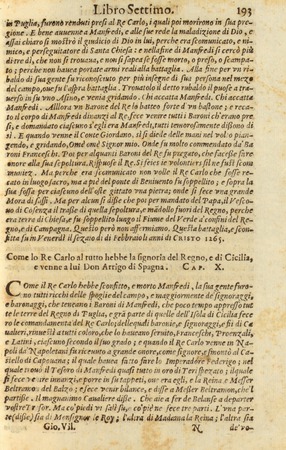 Libro Settimo. 193
in Puglia, furono renduti presi al Re Carlo, i quali poi morirono in sua pre
gione. E bene auuenne a Manfredi, e alle sue rede la maladizione di Dio, e
assai chiaro si mostrò il giudicio di Dio in lui, perche era scomunicato, e ni-
mico, e perseguitatore di Santa Chiesa: e nella fine di Manfredi si cercò più
di tre dì, che non se trouaua, e non si sapea se fosse morto, o preso, o scampa-
to; perche non hauea portate armi reali alla battaglia. Alla fine per vn ri-
baldo di sua gente fu riconosciuto per più insegne di sua persona nel mezo
del campo, oue fu l'aspra Battaglia. Trouato il detto rubaldo il puose a tra-
uerso in su vno Asino, e venia gridando. Chi accatta Manfredi. Chi accatta
Manfredi. Allhora vn Barone del Re lo batteo forte d'vn bastone; e reca-
to il corpo di Manfredi dinanzi al Re fece venire tutti i Baroni ch'erano pre
si, e domandato ciascuno s'egli era Manfredi, tutti temorosamente dissono di
sì. E quando venne il Conte Giordano, il si diede delle mani nel volto pian-
gendo, e gridando, Omè omè Signor mio. Onde fu molto commendato da Ba
roni Franceschi. Poi per alquanti Baroni del Re fu pregato, che facesse fare
onore alla sua sepoltura, Rispuose il Re. Si feice ie volontiers si lsi fust scom
muniez. Ma perche era scomunicato non volle il Re Carlo che fosse re-
cato in luogo sacro, ma a piè del ponte di Beniuento fu soppellito; e sopra la
sua fossa per ciascuno dell'oste gittata vna pietra; onde si fece vna grande
Mora di sassi. Ma per alcun si disse che poi per mandato del Papa, il Vesco-
uo di Cosenza il trasse di quella sepoltura, e mandollo fuori del Regno, perche
era terra di Chiesa, e fu soppellito lungo il Fiume del Verde a confini del Re-
gno, e di Campagna. Questo però non affermiamo. Questa battaglia, e scon-
fitta fu in Venardì il sezaio dì di Febbraio li anni di CRISTO 1265.
Come lo Re Carlo al tutto hebbe la signoria del Regno, e di Cicilia,
e venne a lui Don Arrigo di Spagna. CAP. X.
COme il Re Carlo hebbe sconfitto, e morto Manfredi. La sua gente furo-
no tutti ricchi delle spoglie del campo, e maggiormente de signoraggi,
e baronaggi, che teneano i Baroni di Manfredi, che poco tempo appresso tut
te le terre del Regno di Puglia, e grà parte di quelle dell'Isola di Cicilia fece
ro le comandamenta del Re Carlo;
Latini, ciascuno secondo il suo grado; e quando lo Re Carlo venne in Na-
poli da Napoletani fu riceuuto a grande onore, come signore, e smontò al Ca-
stello di Capouana, il quale hauea fatto fare lo Imperadore Federigo; nel
quale trouò il Tesoro di Manfredi quasi tutto in oro di Teri spezato; il quale
si fece venire innanzi, e porre in su tapeti, oue era egli, e la Reina e Messer
Beltramo del Balzo; e fece venir bilance, e disse a Messer Beltramo, che 'l
partisse. Il magnanimo Caualiere disse. Che aie a fer de Belanse a departer
vostre Tresor. Ma co' piedi vi salì su, co' piè ne fece tre parti. L'vna par-
te (disse) sia di Monsignor lo Roy; l'altra di Madama la Reina; l'altra sia
Gio. Vill. N de'vo-